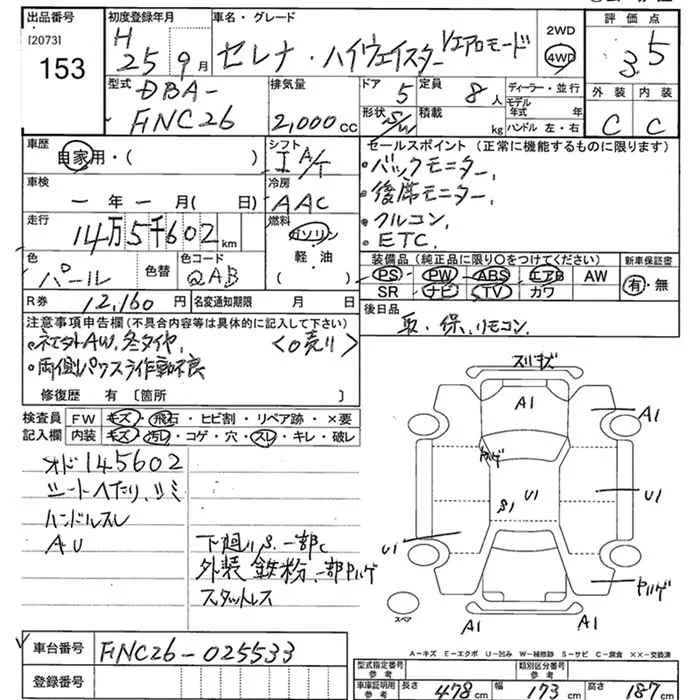 出品番号
[2073]
153
初度登録年月
H
25 9月
車名・グレード
セレナ・ハイウェイスター Vエアロモード
2WD
4WD
評価点
3.5
外装 内装
C C
型式
DBA-
FNC26
排気量
2,000cc
ドア 5
定員 8人
形状 S/W
積載 kg
ディーラー・並行
モデル年式 年
ハンドル 左・右
車歴
自家用・( )
シフト
I A/T
セールスポイント (正常に機能するものに限ります)
・バックモニター,
・後席モニター,
・クルコン,
・ETC.
車検
ー年ー月( 日)
冷房
AAC
走行
14万5千602km
燃料
ガソリン
軽・油
( )
色
パール
色替
色コード
QAB
装備品 (純正品に限り○をつけてください)
PS PW ABS エアB AW
SR ナビ TV カワ
新車保証書
有・無
R券 12,160円
名変通知期限 月 日
後日品
取・保,リモコン,
注意事項申告欄 (不具合内容等は具体的に記入して下さい)
・キズ外AW,冬タイヤ, <○売り>
・両側パワスラ作動不良
修復歴 有 〔箇所 〕
検査員記入欄
FW キズ・飛石・ヒビ割・リペア跡・×要
内装 キズ・汚レ・コゲ・穴・スレ・キレ・破レ
オド145602
シートヘたり,シミ
ハンドルスレ
AU
下廻りS,一部C
外装 鉄粉,一部ハゲ
スタットレス
スリキズ
A1
A1
ハゲ
U1
S1
U1
U1
ハゲ
A1
A1
スペア
A－キズ E－エクボ U－凹み W－補修跡 S－サビ C－腐食 ××－交換済
車台番号 FNC26-025533
登録番号
型式指定番号 参考
類別区分番号 参考
車庫証明用参考 長さ 478cm 幅 173cm 高さ 187cm